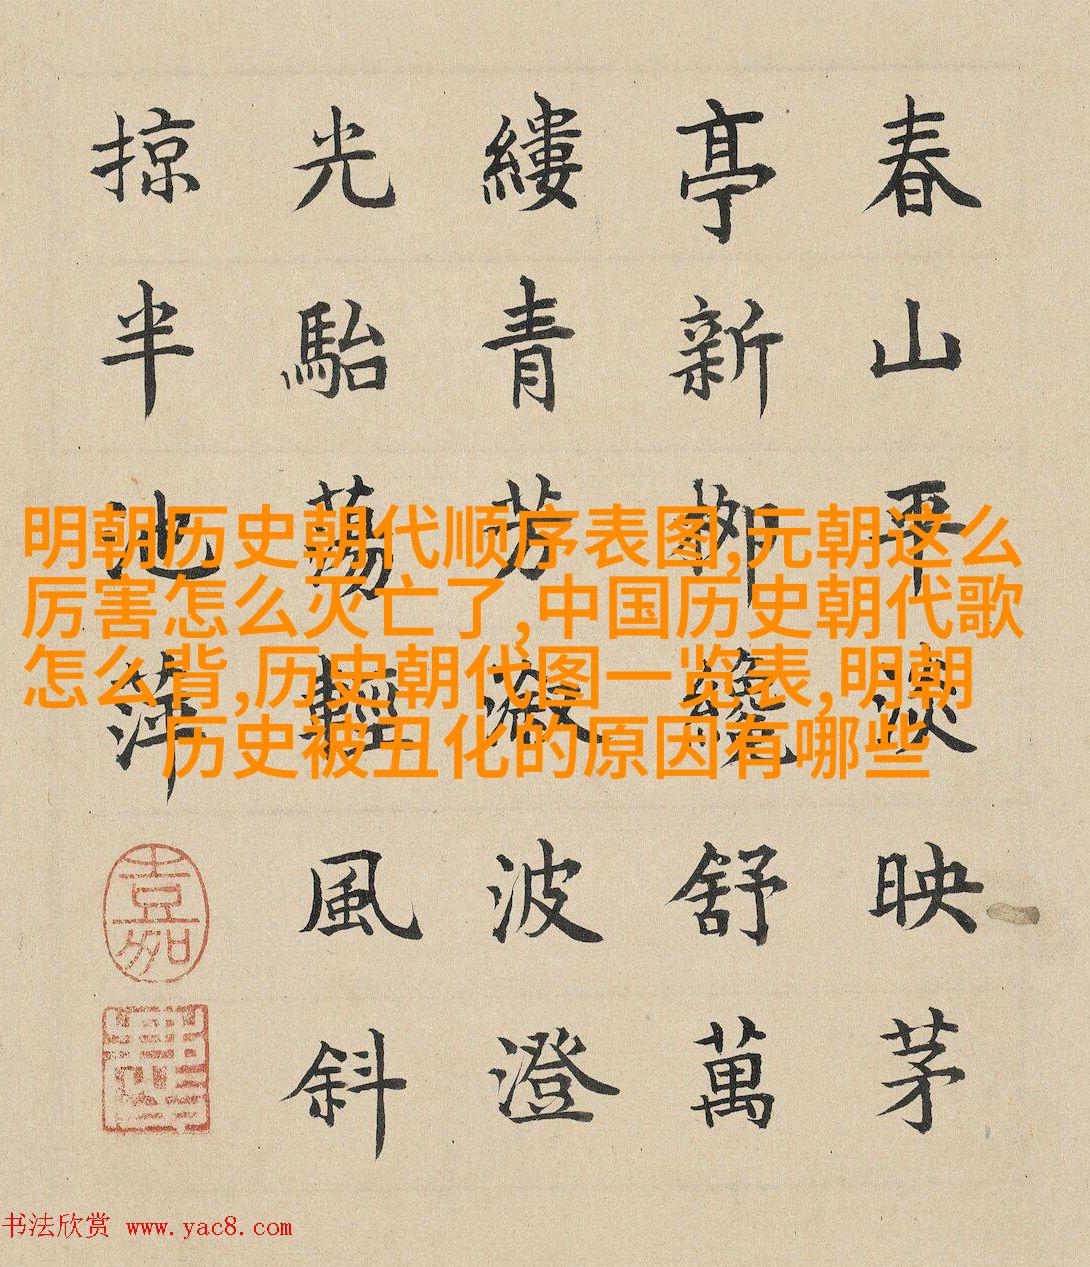 春山平淡映茅
亭新柳纔舒萬
縷青芳波澄
光駘蕩輕風斜
掠半池萍
明朝历史朝代顺序表图,元朝这么
厉害怎么灭亡了,中国历史朝代歌
怎么背,历史朝代图一览表,明朝
历史被丑化的原因有哪些
书法欣赏 www.yac8.com